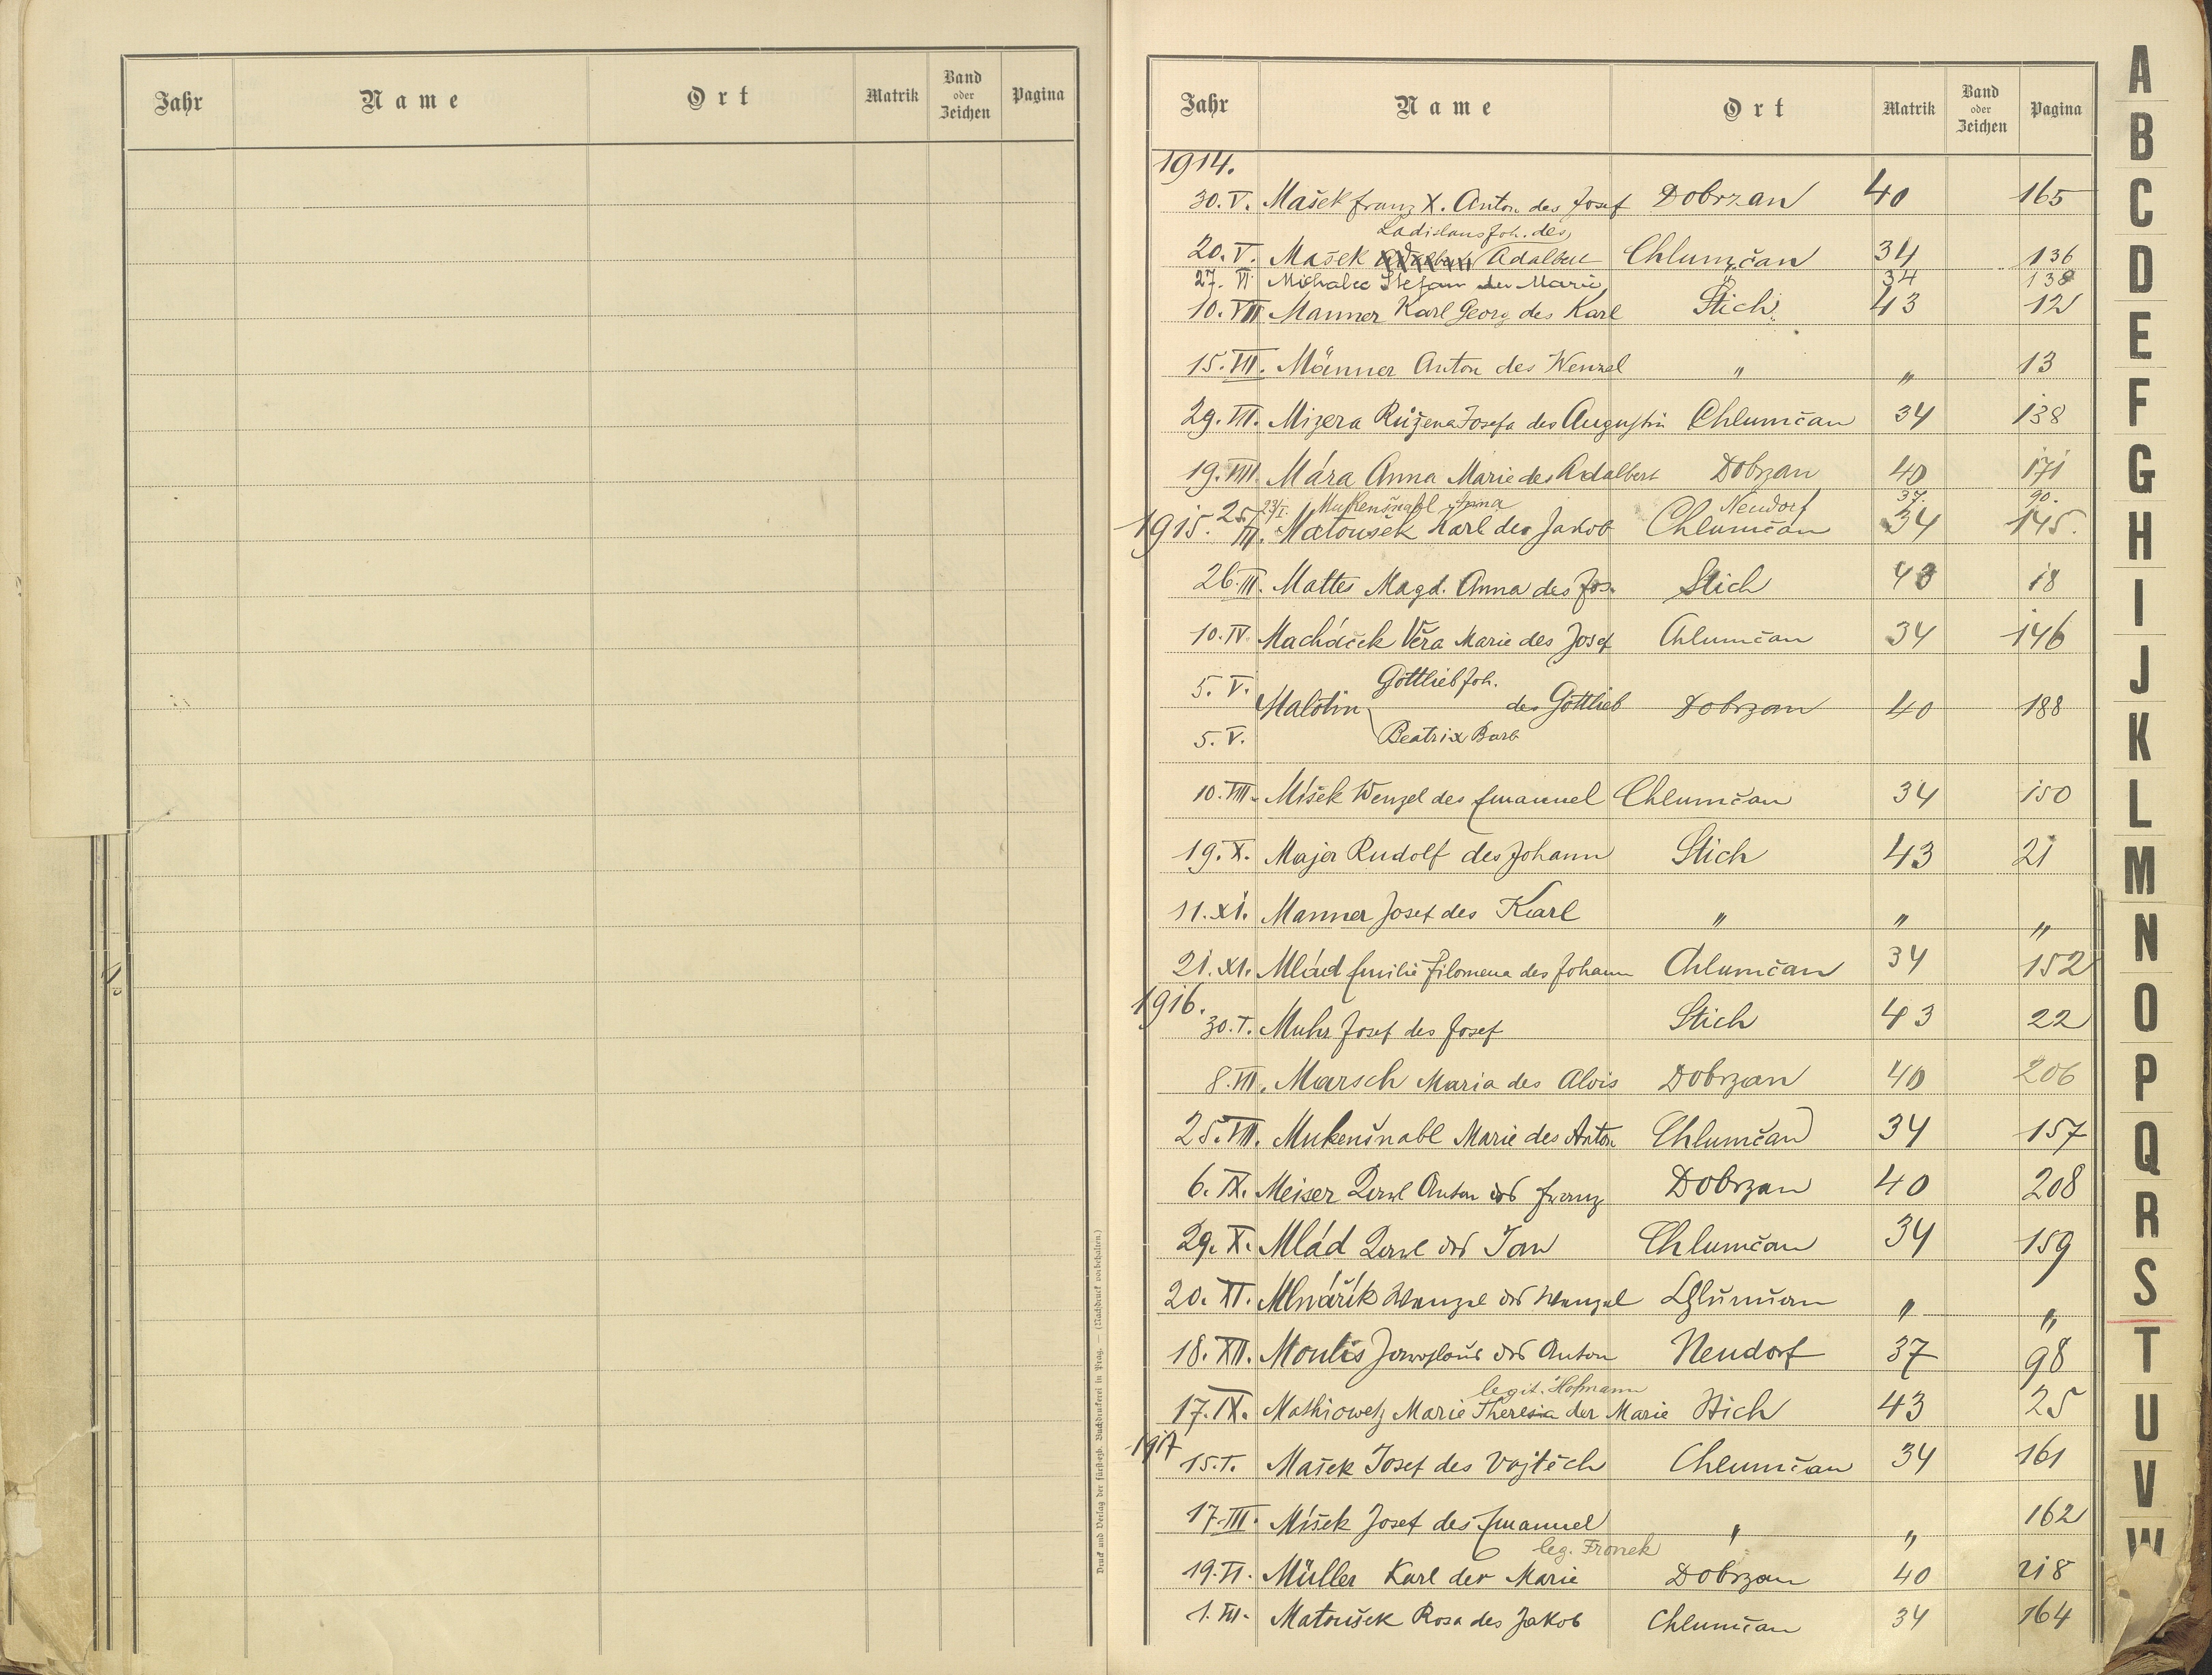 Jahr Name Ort Matrik Band oder Zeichen Pagina
Druck und Verlag der fürsterzb. Buchdruckerei in Prag. — (Nachdruck vorbehalten.)
Jahr Name Ort Matrik Band oder Zeichen Pagina
1914.
30. V. Mašek Franz X. Anton des Josef Dobrzan 40 165
Ladislaus Joh. des
20. V. Mašek Adalbert Chlumčan 34 136
27. VI Michalec Štefan der Marie " 34 138
10. VII Manner Karl Georg des Karl Stich 43 12
15. VII. Männer Anton des Wenzel " " 13
29. VII. Mizera Růžena Josefa des Augustin Chlumčan 34 138
19. VIII. Mára Anna Marie des Adalbert Dobrzan 40 171
23/I. Mukenšnabl Anna Neudorf 37. 90.
1915. 25/III. Matoušek Karl des Jakob Chlumčan 34 145.
26. III. Mattes Magd. Anna des Jos. Stich 43 18
10. IV. Macháček Věra Marie des Josef Chlumčan 34 146
5. V. Gottlieb Joh.
Malotin des Gottlieb Dobrzan 40 188
5. V. Beatrix Barb
10. VIII. Mišek Wenzel des Emanuel Chlumčan 34 150
19. X. Majer Rudolf des Johann Stich 43 21
11. XI. Manner Josef des Karl " " "
21. XI. Mlád Emilie Filomena des Johann Chlumčan 34 152
1916.
30. I. Muhr Josef des Josef Stich 43 22
8. VII. Marsch Maria des Alois Dobrzan 40 206
25. VII. Mukenšnabl Marie des Anton Chlumčan 34 157
6. IX. Meiser Karl Anton des Franz Dobrzan 40 208
29. X. Mlád Karl des Jan Chlumčan 34 159
20. XI. Mlnářík Wenzel des Wenzel Chlumčan " "
18. XII. Moulis Jaroslaus des Anton Neudorf 37 98
legit. Hofmann
17. IX. Mathiowetz Marie Theresia der Marie Stich 43 25
1917
15. I. Mašek Josef des Vojtěch Chlumčan 34 161
17. III. Mišek Josef des Emanuel " " 162
leg. Fronek
19. VI. Müller Karl der Marie Dobrzan 40 218
1. VII. Matoušek Rosa des Jakob Chlumčan 34 164
A
B
C
D
E
F
G
H
I
J
K
L
M
N
O
P
Q
R
S
T
U
V
W